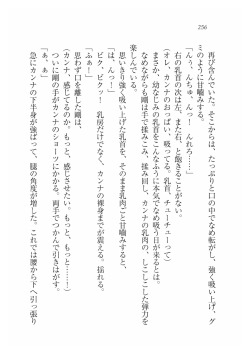 256
再び含んでいた。そこからは、たっぷりと口の中でなめ転がし、強く吸い上げ、グ
ミのように甘噛みする。
「んぅ、んちゅ、んっ！　んれろ……」
右の乳首の次は左を。また右と、飽きることがない。
（オレ、カンナのおっぱい、吸ってる。乳首、チューチューって）
まさか、幼なじみの乳首をこんなふうに本気でなめ吸う日が来るとは。
なめながらも剛は手で揉みこみ、揉み回し、カンナの乳肉の、しこしこした弾力を
楽しんでいる。
思いきり強く吸い上げた乳首を、そのまま乳肉ごと甘噛みすると、
「は、んっ！」
ビク、ビクッ！　乳房だけでなく、カンナの裸身までが震える。揺れる。
「ふぁぁー！」
思わず口を離した剛は、
カンナ、感じてるのか。もっと、感じさせたい。もっと、もっと……！
ついに剛の手がカンナのショーツにかかる。両手でつかんで引きはがす。
「ぁ、あ」
急にカンナの下半身が強ばって、腿の角度が増した。これでは腰から下へ引っ張り